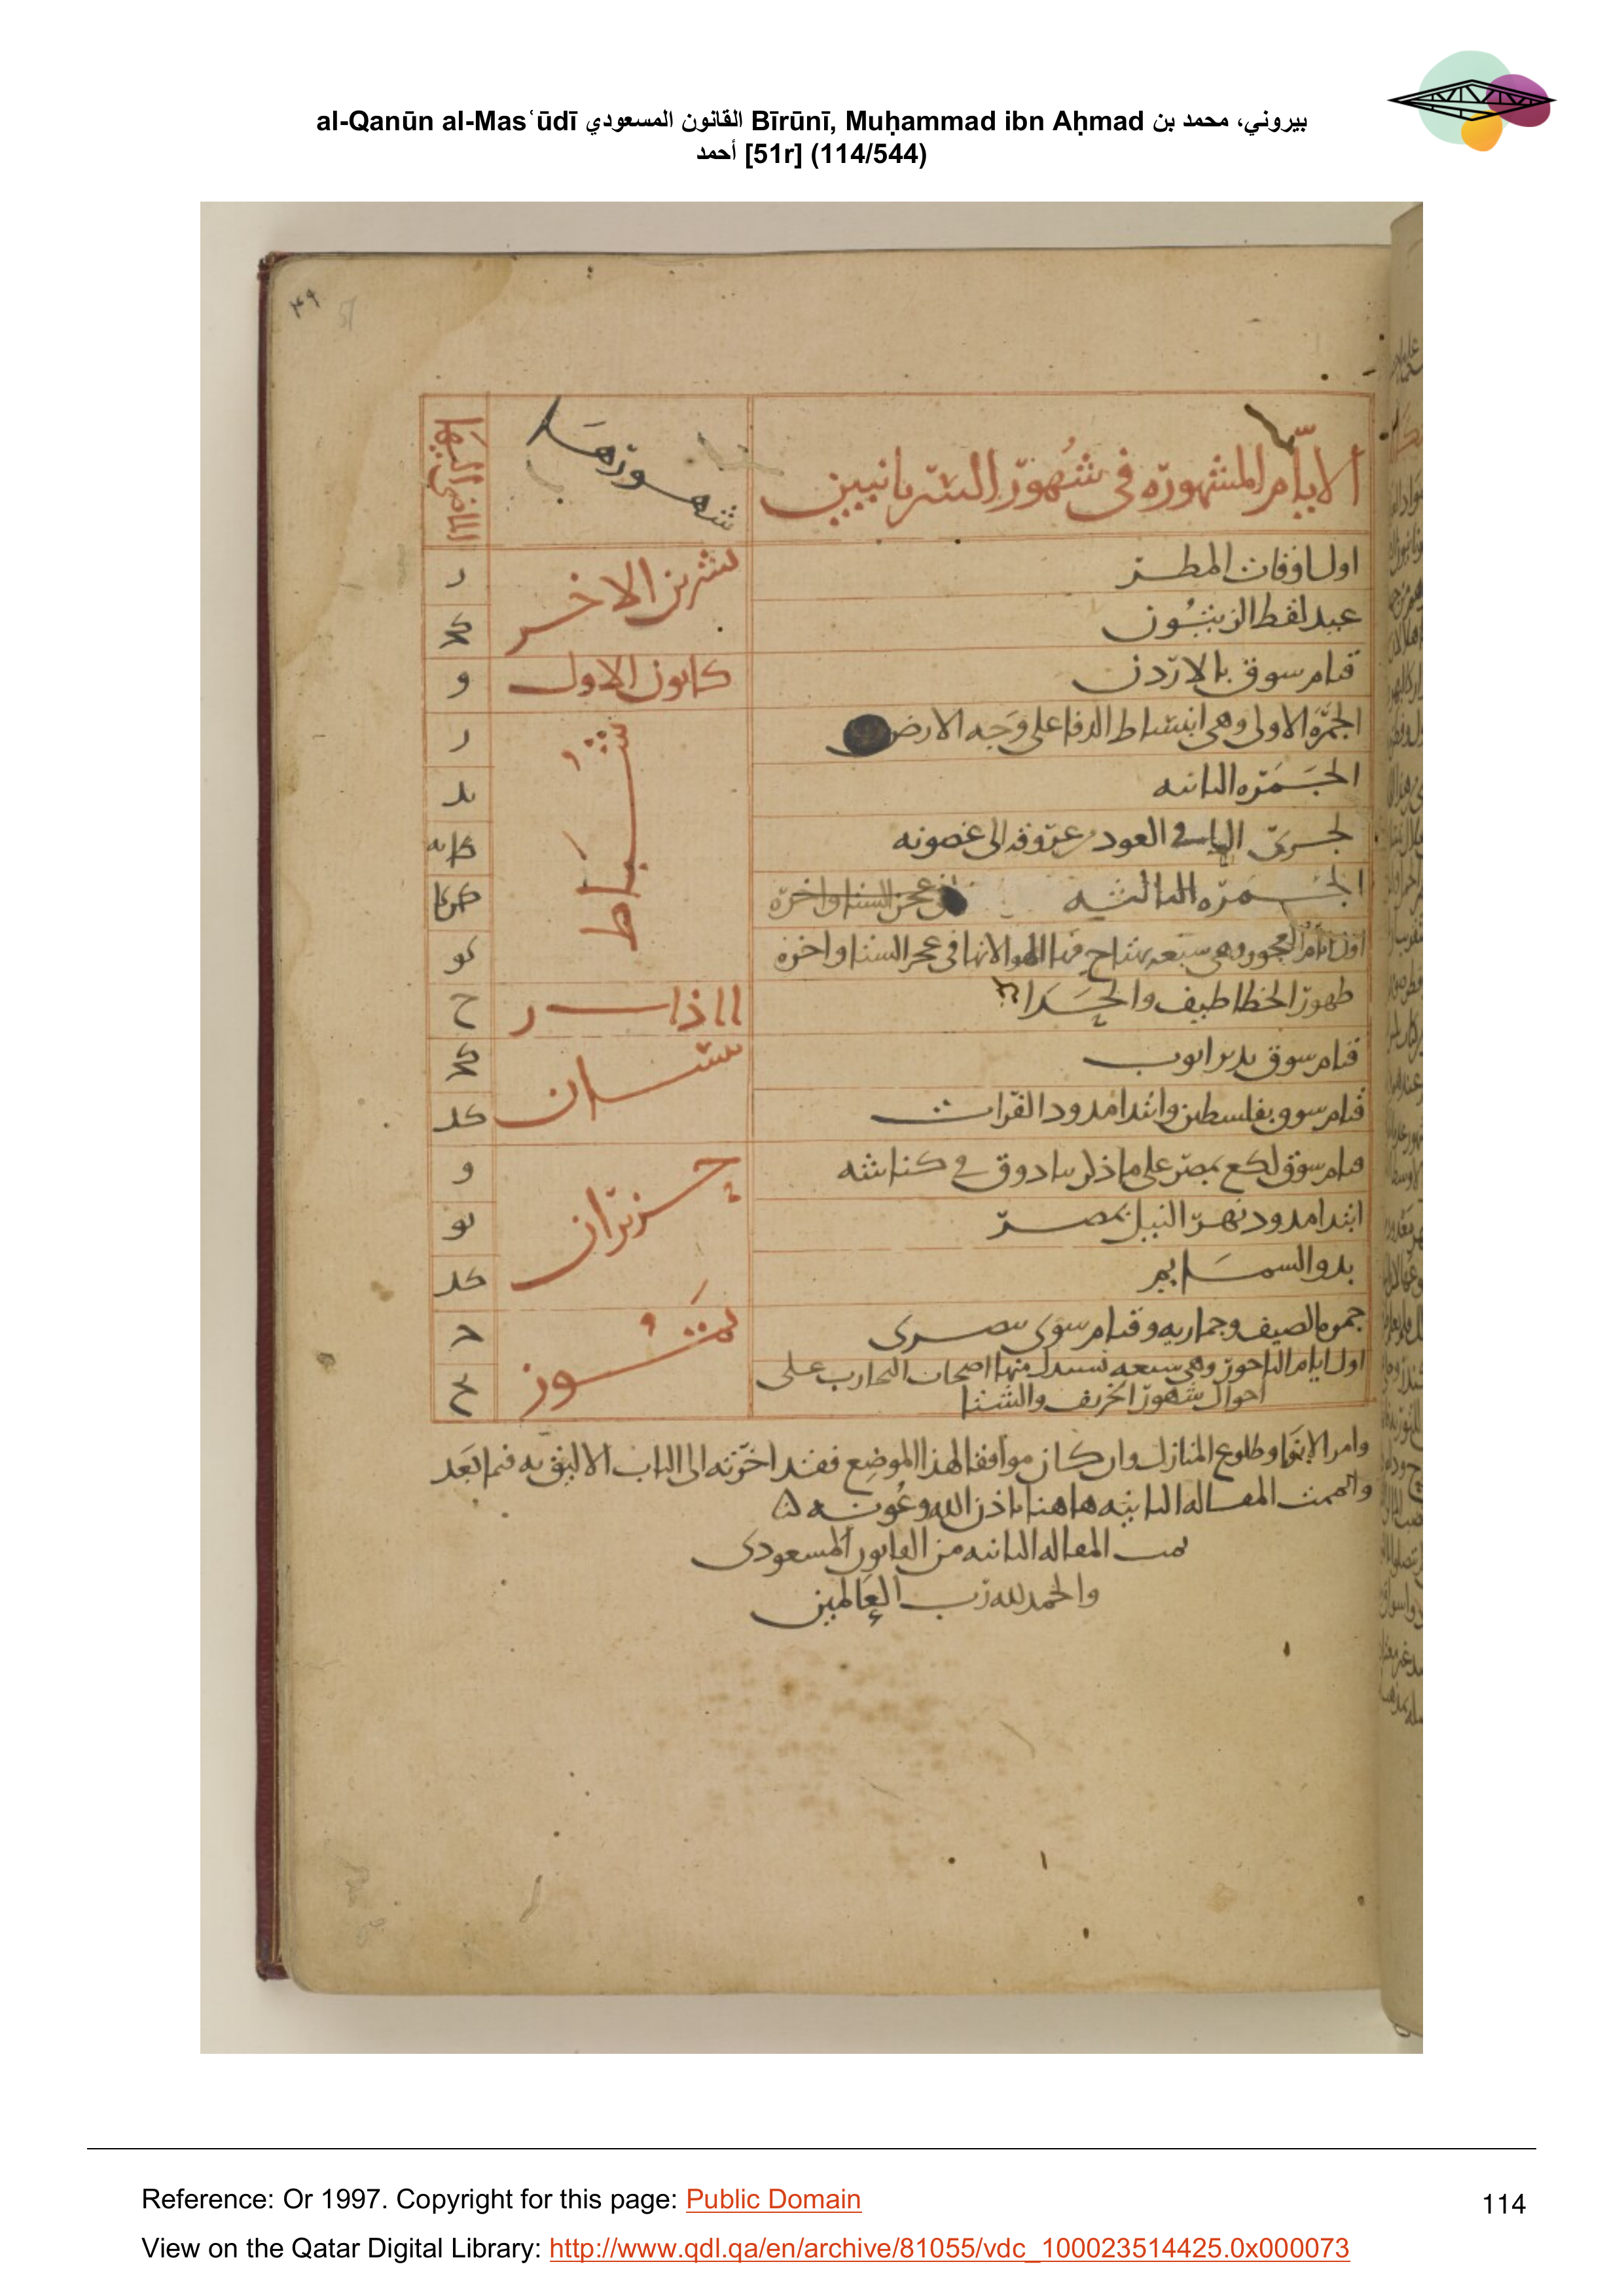 al-Qanūn al-Mas‘ūdī القانون المسعودي Bīrūnī, Muḥammad ibn Aḥmad بيروني، محمد بن
أحمد [51r] (114/544)
٤٩
51
الايام المشهورة فى شهور السريانيين شهورها الماضى اليها
اول اوقات المطر تشرين الاخر ر
عيد لقط الزيتون كح
قيام سوق بالاردن كانون الاول و
الجمرة الاولى وهى انبساط الدفا على وجه الارض شباط ر
الجمره الثانيه يد
لجرى الما فى العود عروقه الى غصونه
الجمره الثالثيه عجز الشتا واخره
اول ايام العجوز وهى سبعه فى عجز الشتا واخره كو
ظهور الخطاطيف والحدا ااذار ح
قيام سوق بدير ايوب نيسان كح
قيام سوق بفلسطين وابتدا مدود الفرات كد
قيام سوق لكع بمصر على ما ذكر سادوق فى كناشته حزيران و
ابتدا مدود نهر النيل بمصر يو
بدو السمايم كد
الصيف وقيام سوق بصرى تموز
اول ايام الباحور وهى سبعه يستدل منها اصحاب التجارب على
احوال شهور الخريف والشتا
وامر الانوا وطلوع المنازل وان كان موافقا لهذا الموضع فقد اخرته الى الباب الاليق به فيما بعد
المقاله الثانيه هاهنا باذن الله وعونه
تمت المقاله الثانيه من القانون المسعودى
والحمد لله رب العالمين
Reference: Or 1997. Copyright for this page: Public Domain
114
View on the Qatar Digital Library: http://www.qdl.qa/en/archive/81055/vdc_100023514425.0x000073